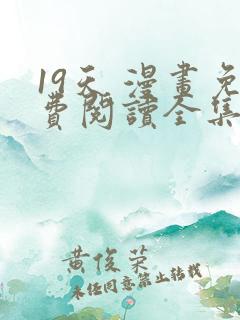 19天 漫畫免
費閱讀全集
黄俊荣
未经同意禁止转载